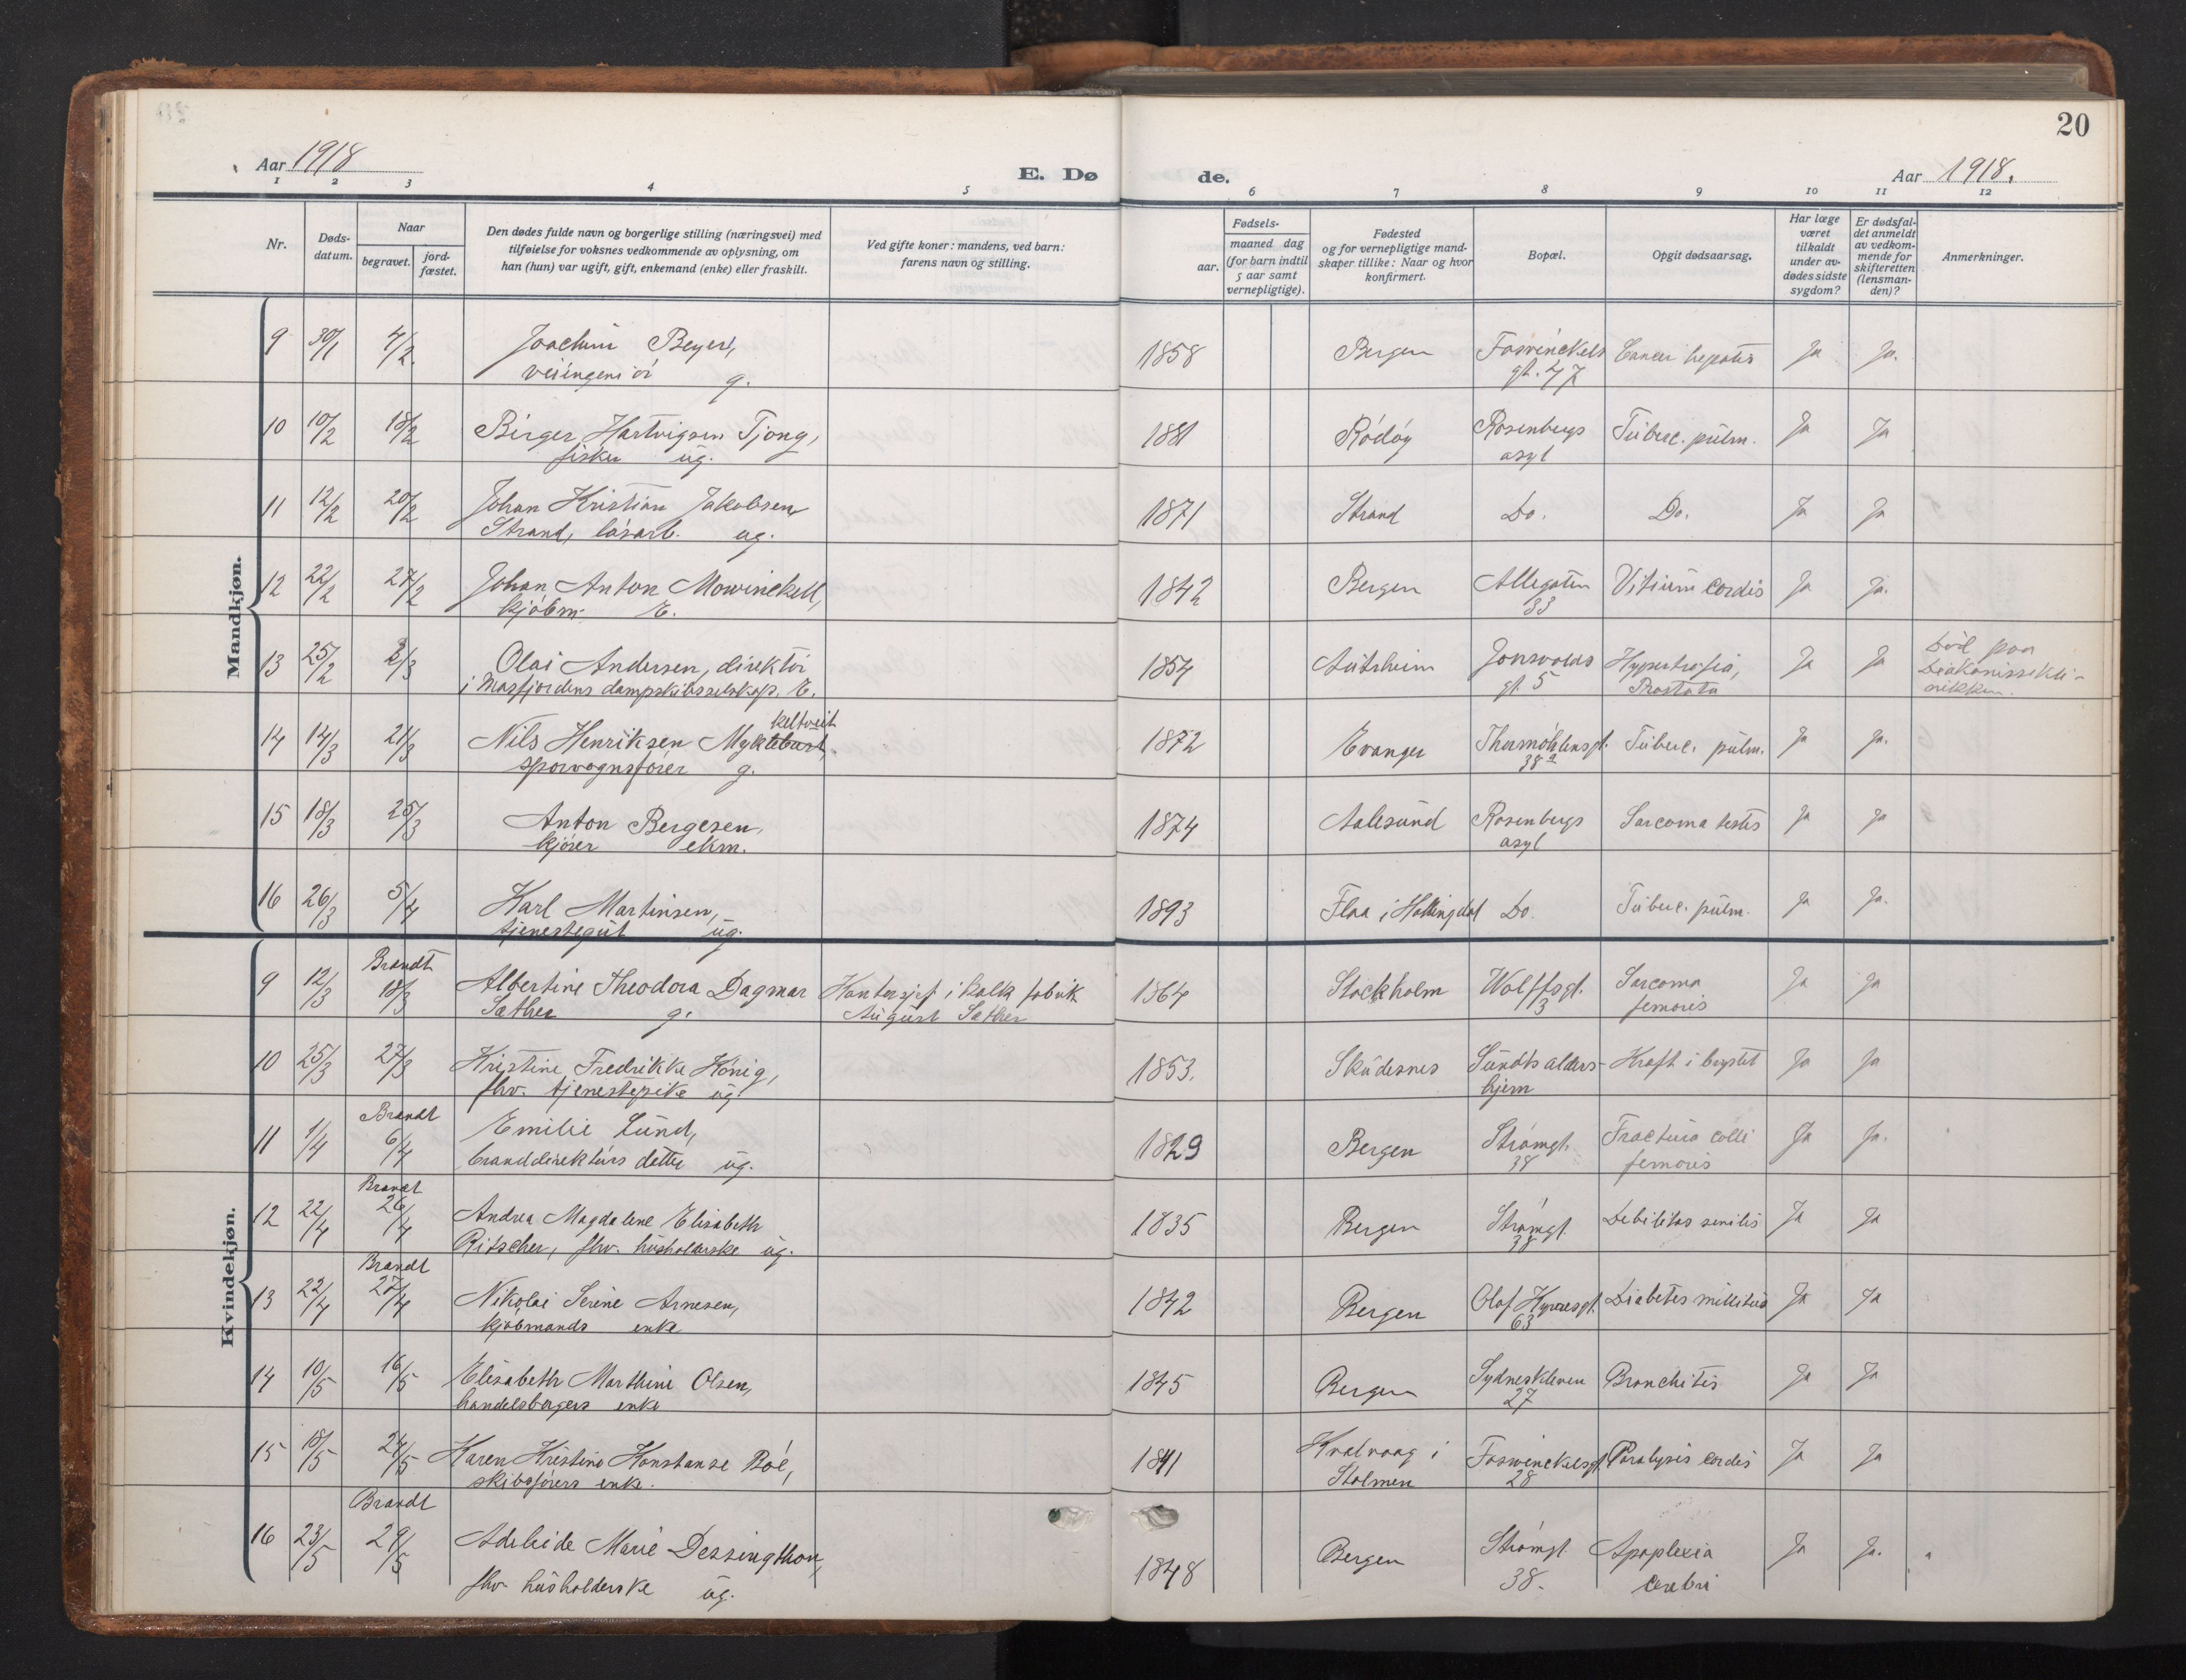 20
Aar 1918
E. Dø
de.
Aar 1918.
1 2 3 4 5 6 7 8 9 10 11 12
Nr.
Døds-
datum.
Naar
begravet.
jord-
fæstet.
Den dødes fulde navn og borgerlige stilling (næringsvei) med
tilføielse for voksnes vedkommende av oplysning, om
han (hun) var ugift, gift, enkemand (enke) eller fraskilt.
Ved gifte koner: mandens, ved barn:
farens navn og stilling.
Fødsels-
aar.
maaned dag
(for barn indtil
5 aar samt
vernepligtige).
Fødested
og for vernepligtige mand-
skaper tillike: Naar og hvor
konfirmert.
Bopæl.
Opgit dødsaarsag.
Har læge
været
tilkaldt
under av-
dødes sidste
sygdom?
Er dødsfal-
det anmeldt
av vedkom-
mende for
skifteretten
(lensman-
den)?
Anmerkninger.
Mandkjøn.
9 30/1 4/2. Joachim Beyer, 1858 Bergen Foswinckels Cancer hepatis Ja Ja.
veiingeniör g. gt. 47
10 10/2 18/2 Birger Hartvigsen Tjong, 1881 Rödöy Rosenbergs Tuberc. pulm. Ja Ja
fisker ug. asyl
11 12/2 20/2 Johan Kristian Jakobsen 1871 Strand Do. Do. Ja Ja
Strand, lösarb. ug.
12 22/2 27/2 Johan Anton Mowinckell, 1842 Bergen Allegaten Vitium cordis Ja Ja.
kjöbm. E. 33
13 25/2 2/3 Olai Andersen, direktör 1854 Autsheim Jonsvolds Hypertrofia, Ja Ja Död paa
i Masfjordens dampskibsselskap. E. gt. 5 Prostata Diakonissekli-
nikken.
keltveit
14 14/3 21/3 Nils Henriksen Myklebust, 1872 Evanger Thormöhlensgt. Tuberc. pulm. Ja Ja.
sporvognsförer g. 38a
15 18/3 25/3 Anton Bergesen, 1874 Aalesund Rosenbergs Sarcoma testis Ja Ja
kjörer ekm. asyl
16 26/3 5/4 Karl Martinsen, 1893 Flaa i Hallingdal Do. Tuberc. pulm. Ja Ja.
tjenestegut ug.
Kvindekjøn.
Brandt
9 12/3 18/3 Albertine Theodora Dagmar Kontorsjef i kalk fabrik 1864 Stockholm Wolffsgt. Sarcoma Ja Ja
Sæther g. August Sæther 3 femoris
10 25/3 27/3 Kristine Fredrikke König, 1853. Skudesnes Sundts alders- Kræft i brystet Ja Ja
fhv. tjenestepike ug. hjem
Brandt
11 1/4 6/4 Emilie Lund, 1829 Bergen Strömgt. Fractura colli Ja Ja.
branddirektörs datter ug. 38 femoris
Brandt
12 22/4 26/4 Andrea Magdalene Elisabeth 1835 Bergen Strömgt. Debilitas senilis Ja Ja
Ritscher, fhv. husholderske ug. 38
Brandt
13 22/4 27/4 Nikolai Serine Arnesen, 1842 Bergen Olaf Kyrresgt. Diabetes millitus Ja Ja
kjöbmands enke 63
14 10/5 16/5 Elisabeth Marthine Olsen, 1845 Bergen Sydneskleven Bronchitis Ja Ja
handelsborgers enke 27
15 18/5 24/5 Karen Kristine Konstanse Böe, 1841 Kvalvaag i Foswinckelsgt. Paralysis cordis Ja Ja
skibsförers enke. Stolmen 28
Brandt
16 23/5 29/5 Adelheide Marie Dessingthon, 1848 Bergen Strömgt. Apoplexia Ja Ja.
fhv. husholderske ug. 38. cerebri